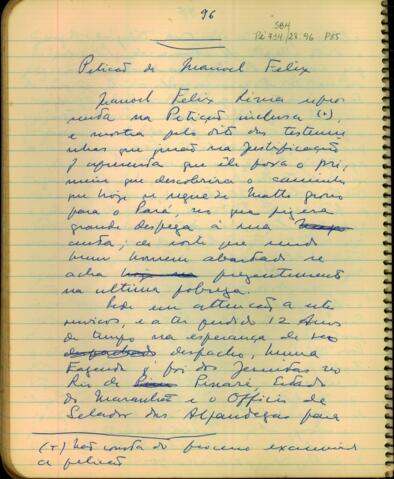 96
SB4
Pi 714/28.96 P85
Petição de Manoel Felix
Manoel Felix Lima repre
zenta na Petição inclusa (+),
e mostra pelo dito das testemu
nhas que jurão na Justificação
q' apresenta que ele fora o pri
meiro que descobrira o caminho
que hoje se segue do Matto grosso
para o Pará, no que fizera
grande despeza á sua
custa; de sorte que sendo
hum homem abastado se
acha prezentemente
na ultima pobreza.
Pede em attenção a este
serviços, e a ter perdido 12 Annos
de tempo na esperança de seo
despachado despacho, huma
Fazenda q' foi dos Jezuitas no
Rio de Pinaré, Estado
do Maranhão e o Officio de
Selador das Alfandegas para
(+) Não consta do processo examinado
a petição